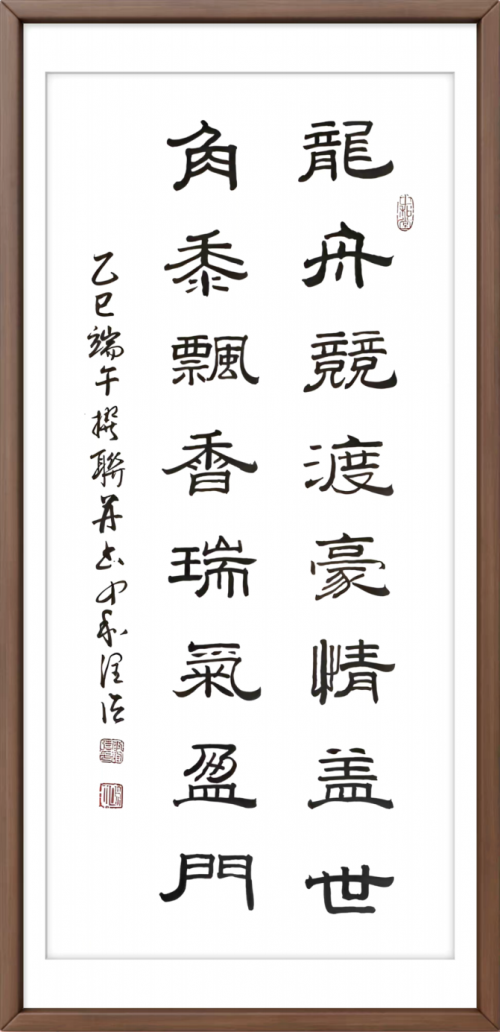 龍舟競渡豪情盖世
角黍飄香瑞氣盈門
乙巳端午撰聯并书